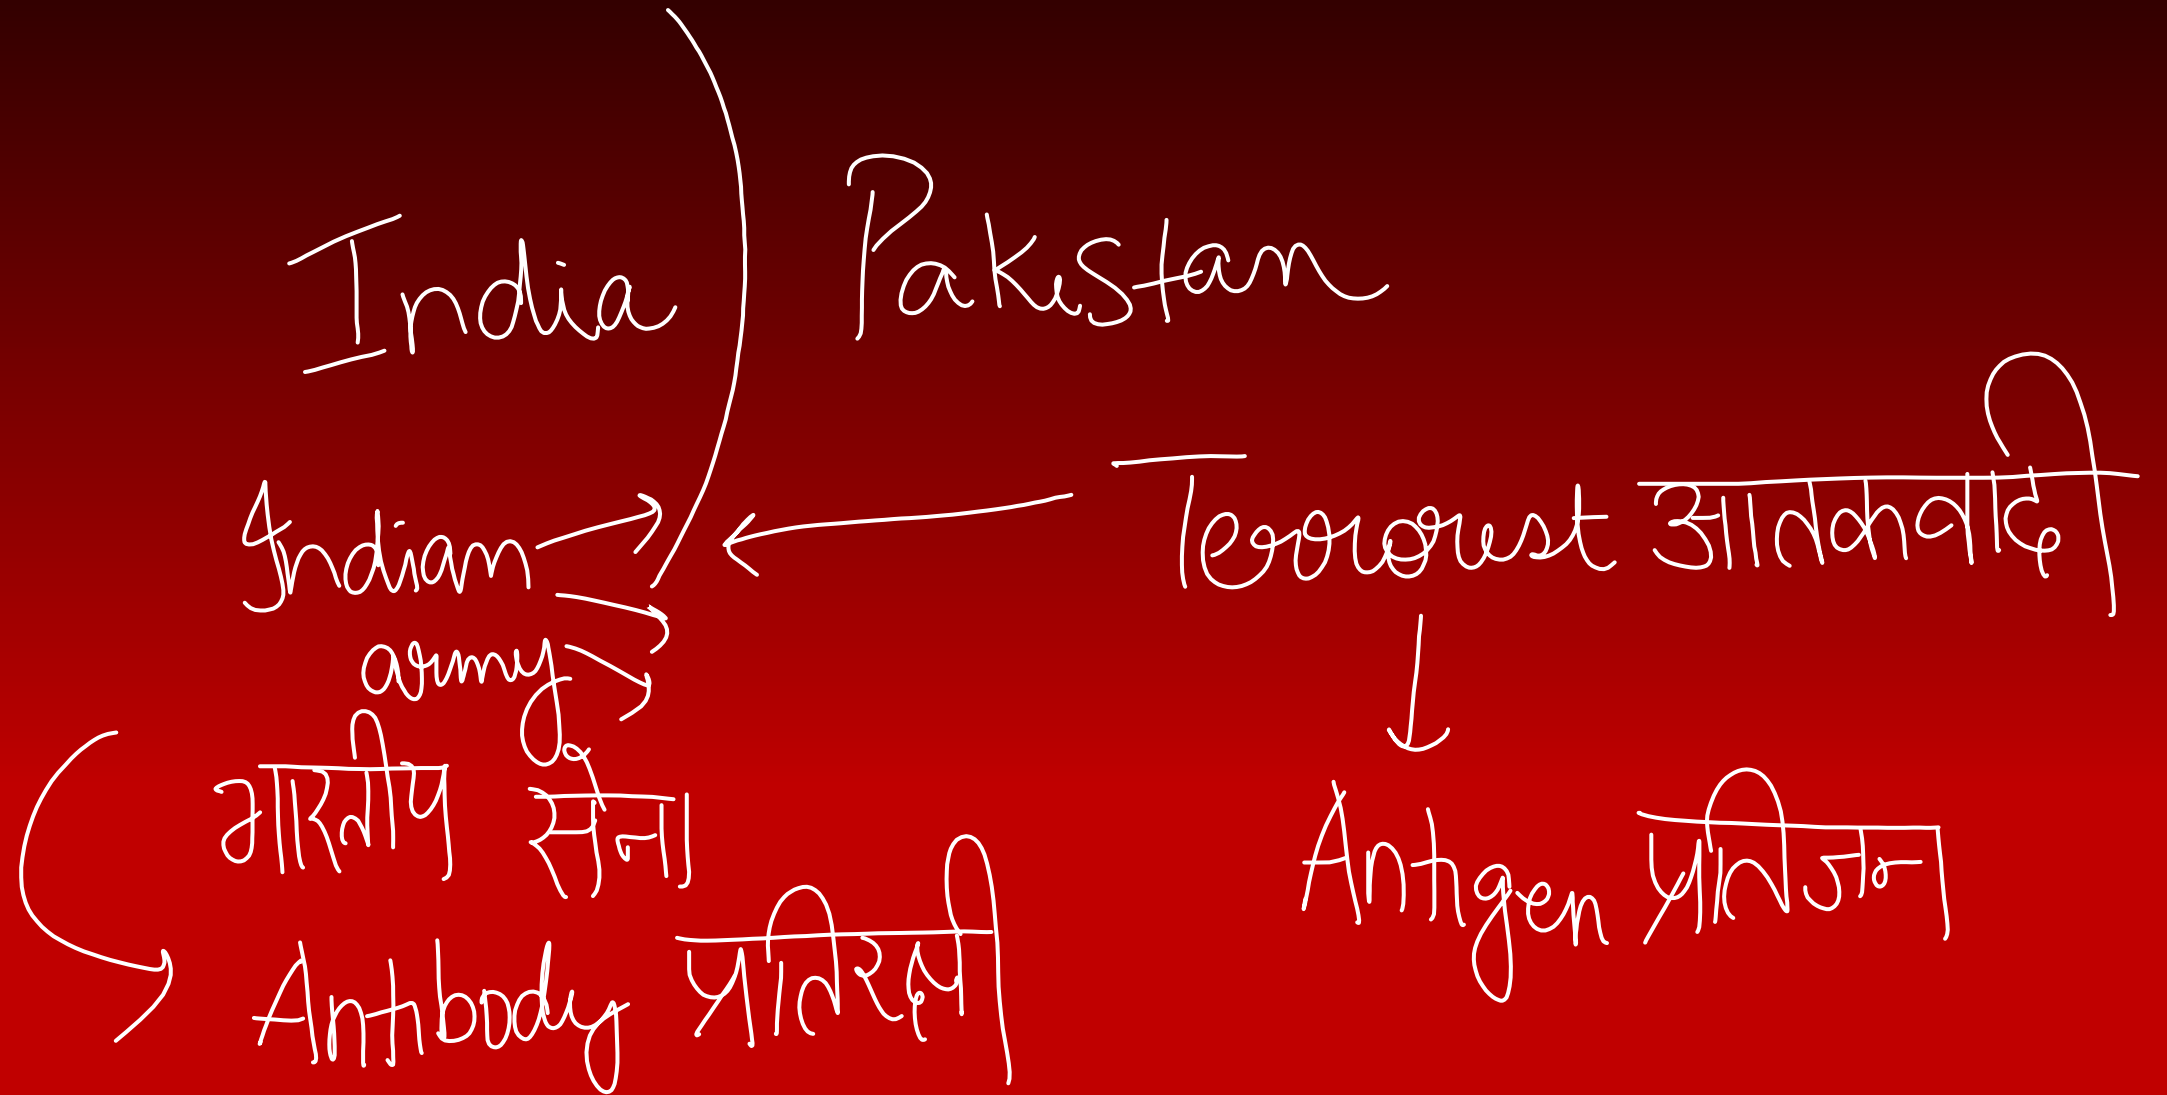 India Pakistan
Indian Terrorist आतकवादी
army
भारतीय सेना
Antigen प्रतिजन
Antibody प्रतिरक्षी